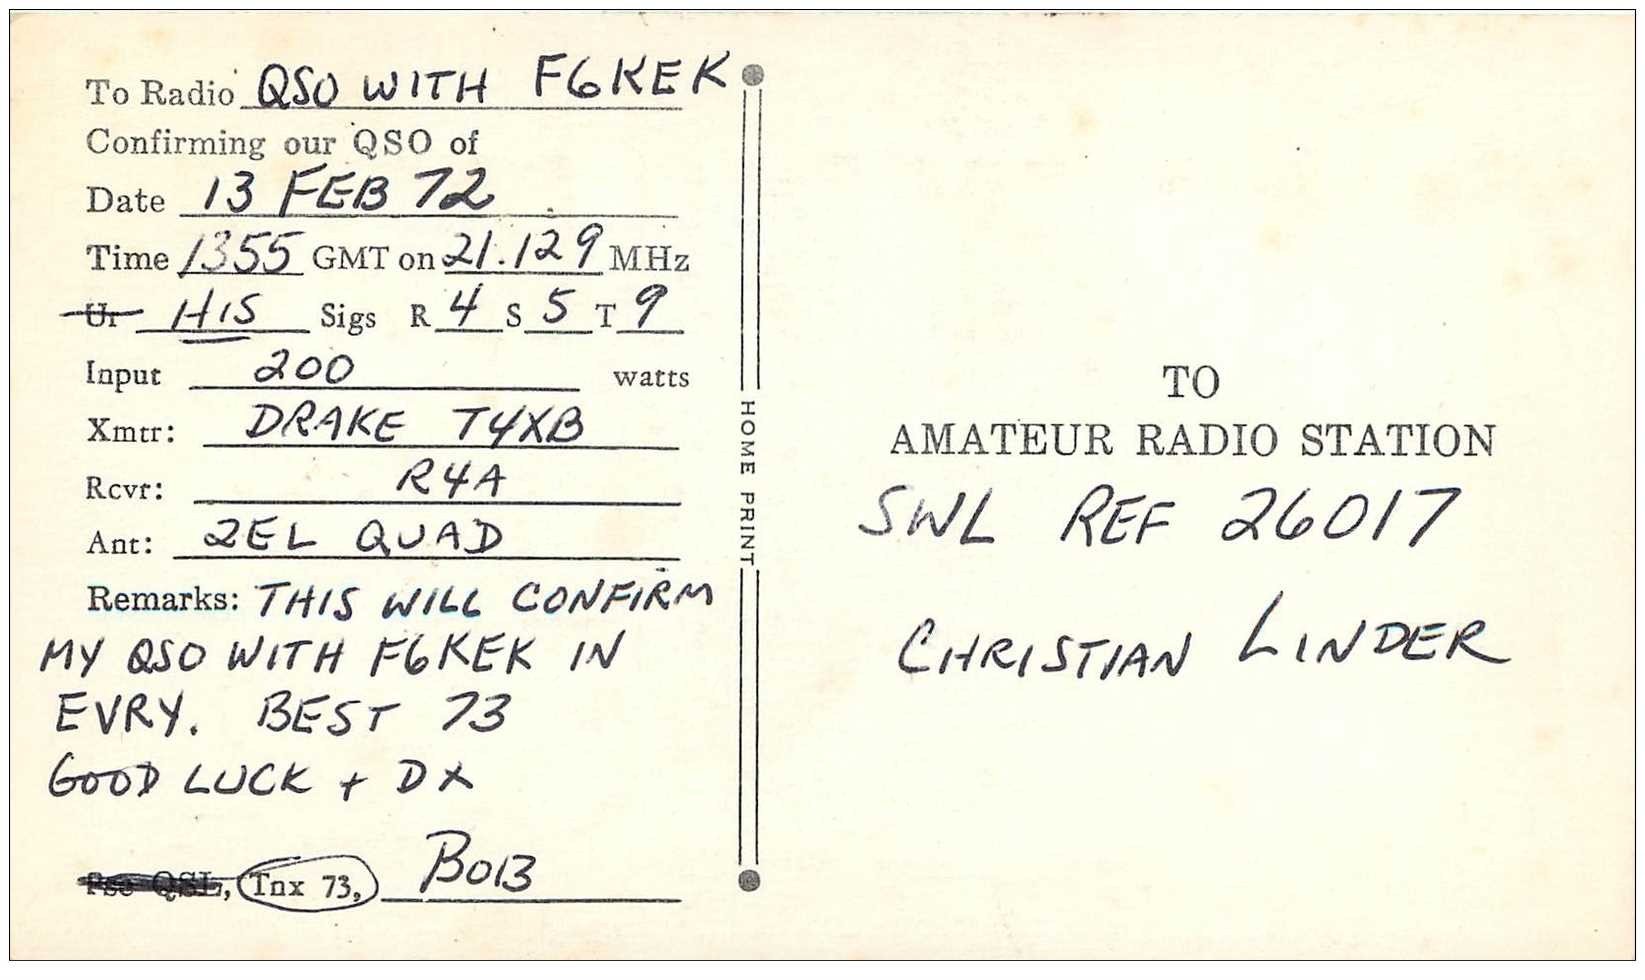 To Radio QSO WITH F6KEK
Confirming our QSO of
Date 13 FEB 72
Time 1355 GMT on 21.129 MHz
Ur HIS Sigs R 4 S 5 T 9
Input 200 watts
Xmtr: DRAKE T4XB
Rcvr: R4A
Ant: 2EL QUAD
Remarks: THIS WILL CONFIRM
MY QSO WITH F6KEK IN
EVRY. BEST 73
GOOD LUCK + DX
Pse QSL, Tnx 73, BOB
HOME PRINT
TO
AMATEUR RADIO STATION
SWL REF 26017
CHRISTIAN LINDER